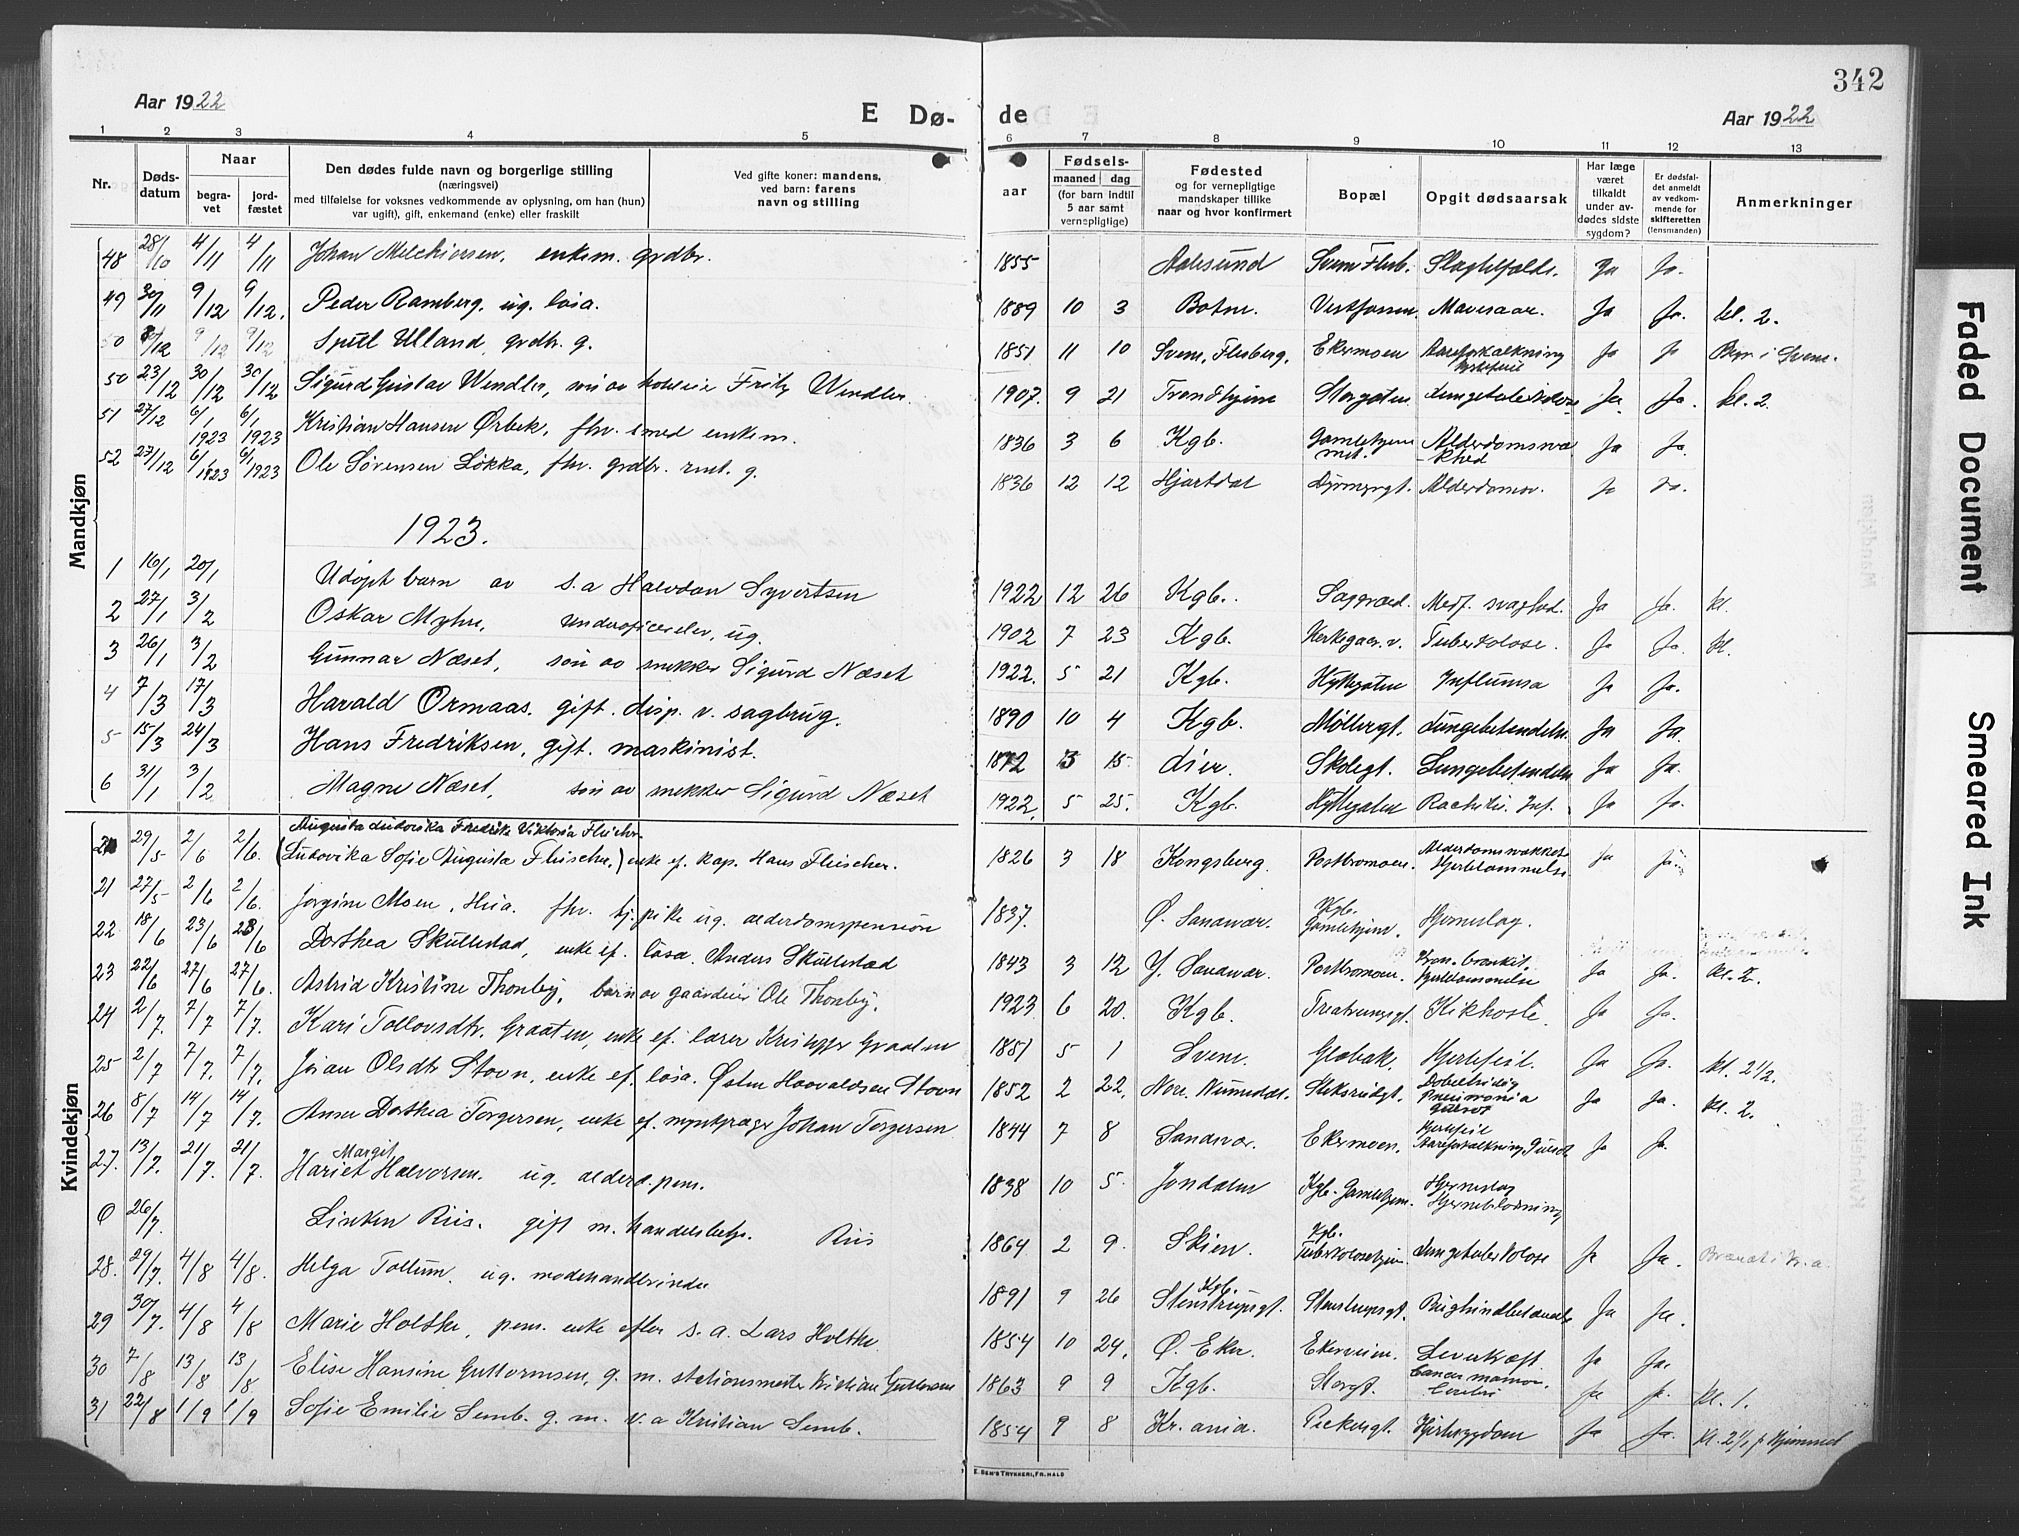 342
Aar 1922
E Dø-
de
Aar 1922
1 2 3 4 5 6 7 8 9 10 11 12 13
Nr.
Døds-
datum
Naar
begra-
vet
jord-
fæstet
Den dødes fulde navn og borgerlige stilling
(næringsvei)
med tilføielse for voksnes vedkommende av oplysning, om han (hun)
var ugift), gift, enkemand (enke) eller fraskilt
Ved gifte koner: mandens,
ved barn: farens
navn og stilling
aar
Fødsels-
maaned dag
(for barn indtil
5 aar samt
vernepligtige)
Fødested
og for vernepligtige
mandskaper tillike
naar og hvor konfirmert
Bopæl
Opgit dødsaarsak
Har læge
været
tilkaldt
under av-
dødes sidste
sygdom?
Er dødsfal-
det anmeldt
av vedkom-
mende for
skifteretten
(lensmanden)
Anmerkninger
Mandkjøn
48 28/10 4/11 4/11 Johan Melchiorsen, enkem. grdbr. 1855 Aalesund Svene Flesb. Ja Ja.
49 30/11 9/12 9/12. Peder Ramberg, ug. løsa. 1889 10 3 Botne Vestfossen Mavesaar. Ja Ja. kl. 2.
50 9/12 9/12 Ulland, grdbr. g. 1851 11 10 Svene, Flesberg. Ekermoen Aareforkalkning Ja Ja Svene.
50 23/12 30/12 30/12 Sigurd Gustav Wendler, søn av Fritz Wendler. 1907. 9 21 Trondhjem Storgaten. Lungetuberkulose Ja. Ja. kl. 2.
51 27/12 6/1 1923 6/1 1923 Kristian Hansen Ørbek, fhv. smed enkem. 1836 3 6 Kgb. Gamlehjemmet. Alderdomssvakhed Ja Ja.
52 27/12 6/1 1923 6/1 1923 Ole Sørensen Løkka, fhv. grdbr. g. 1836 12 12 Hjartdal Alderdomsv. Ja Ja.
1923.
1 16/1 20/1 Udøpt barn av s.a Halvdan Syvertsen 1922 12 26 Kgb. Medf. svaghed. Ja Ja. kl.
2 27/1 3/2 Oskar Myhre, underoficerelev, ug. 1902 7 23 Kgb. Kirkegaar. v. Tuberkulose. Ja Ja. kl.
3 26/1 3/2 Gunnar Næset, søn av snekker Sigurd Næset 1922. 5 21 Kgb. Hyttegaten Influensa Ja Ja.
4 7/3 17/3 Harald Ormaas. gift. disp. v. sagbrug. 1890 10 4 Kgb. Møllergt. Lungebetændelse Ja Ja
5 15/3 24/3 Hans Fredriksen, gift. maskinist. 1872 5 15 Lier. Skolegt. Lungebetændelse Ja Ja.
6 31/1 3/2 Magne Næset, søn av snekker Sigurd Næset 1922. 5 25. Kgb. Hyttegaten Rachitis. Inf. Ja Ja.
Kvindekjøn
20 29/5 2/6 2/6. Augusta Ludovika Fredrike Viktoria Fleischer
(Ludovika Sofie Augusta Fleischer.) enke ef. kap. Hans Fleischer. 1826 3 18 Kongsberg. Postbromoen. Alderdomssvakhet Hjertelammelse Ja Ja.
21 27/5 2/6 2/6. Jørgine Moen, fhv. tj. pike ug. alderdomspension 1837. Ø. Sandsvær. Kgb. Gamlehjem. Hjerneslag.
22 18/6 23/6 23/6 Dorthea Skullestad, enke ef. løsa. Anders Skullestad 1843 3 12 Y. Sandsvær. Postbromoen. Hjertelammelse Ja Ja. kl. 2.
23 22/6 27/6 27/6. Astrid Kristine Thonby, barn av gaardeier Ole Thonby. 1923 6 20. Kgb. Kikhoste. Ja Ja.
24 2/7. 7/7 7/7. Kari Tollovsdtr. Graaten, enke ef. lærer Kristoffer Graaten 1851 5 1 Svene. Glabak. Hjertefeil. Ja Ja. kl. 2 1/2.
25 2/7 7/7. 7/7. Jøran Olsdtr Stovn, enke ef. løsa. Østen Haavaldsen Stovn 1852 2 22. Nore. Numedal. Dobeltsidig Pneumonia Ja Ja. kl. 2.
26 8/7 14/7 14/7. Anne Dorthea Torgersen, enke ef. myntpræger Johan Torgersen 1844 7 8 Sandsvær. Ekermoen. Hjertefeil Aareforkalkning Ja Ja.
27. 13/7. 21/7. 21/7. Hariet Margit Halvorsen. ug. alderd. pens. 1838 10 5. Jondalen Kgb. Gamlehjem. Hjerneslag Hjerneblødning
0 26/7. Linken Riis. gift m. handelsbetj. Riis 1864 2 9. Skien. Kgb. Tuberkulosehjem. Lungetuberkulose Ja Ja. Brændt i Kr. a.
28. 29/7. 4/8 4/8. Helga Tollum. ug. modehandlerinde 1891 9 26 Kgb. Stenstrupsgt. Stenstrupsgt. Bughindbetændelse Ja Ja.
29 30/7. 4/8 4/8 Marie Holthe, pens. enke efter s. a. Lars Holthe. 1854 10 24. Ø. Eker. Ekerveien. Leverkræft. Ja Ja.
30 7/8 13/8 13/8 Elise Hansine Guttormsen, g. m. stationsmester Kristian Guttormsen 1863 9 9 Kgb. Storgt. Cancer mammae Ja Ja. kl. 1.
31 22/8 1/9 1/9 Sofie Emilie Semb. g. m. v. a Kristian Semb. 1854 9 8 Kr. ania. Hjertesygdom Ja Ja.
E. SEM'S TRYKKERI, FR.HALD
Faded Document
Smeared Ink